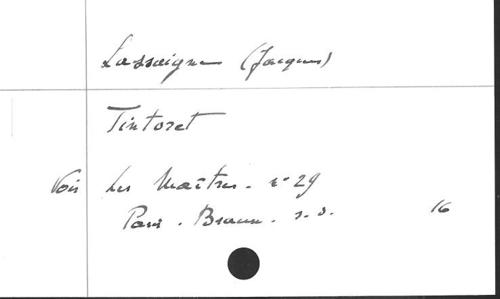 Lassaigne (Jacques)
Tintoret
Voir Les Maîtres - n° 29
Paris - Braun - s. d. 16